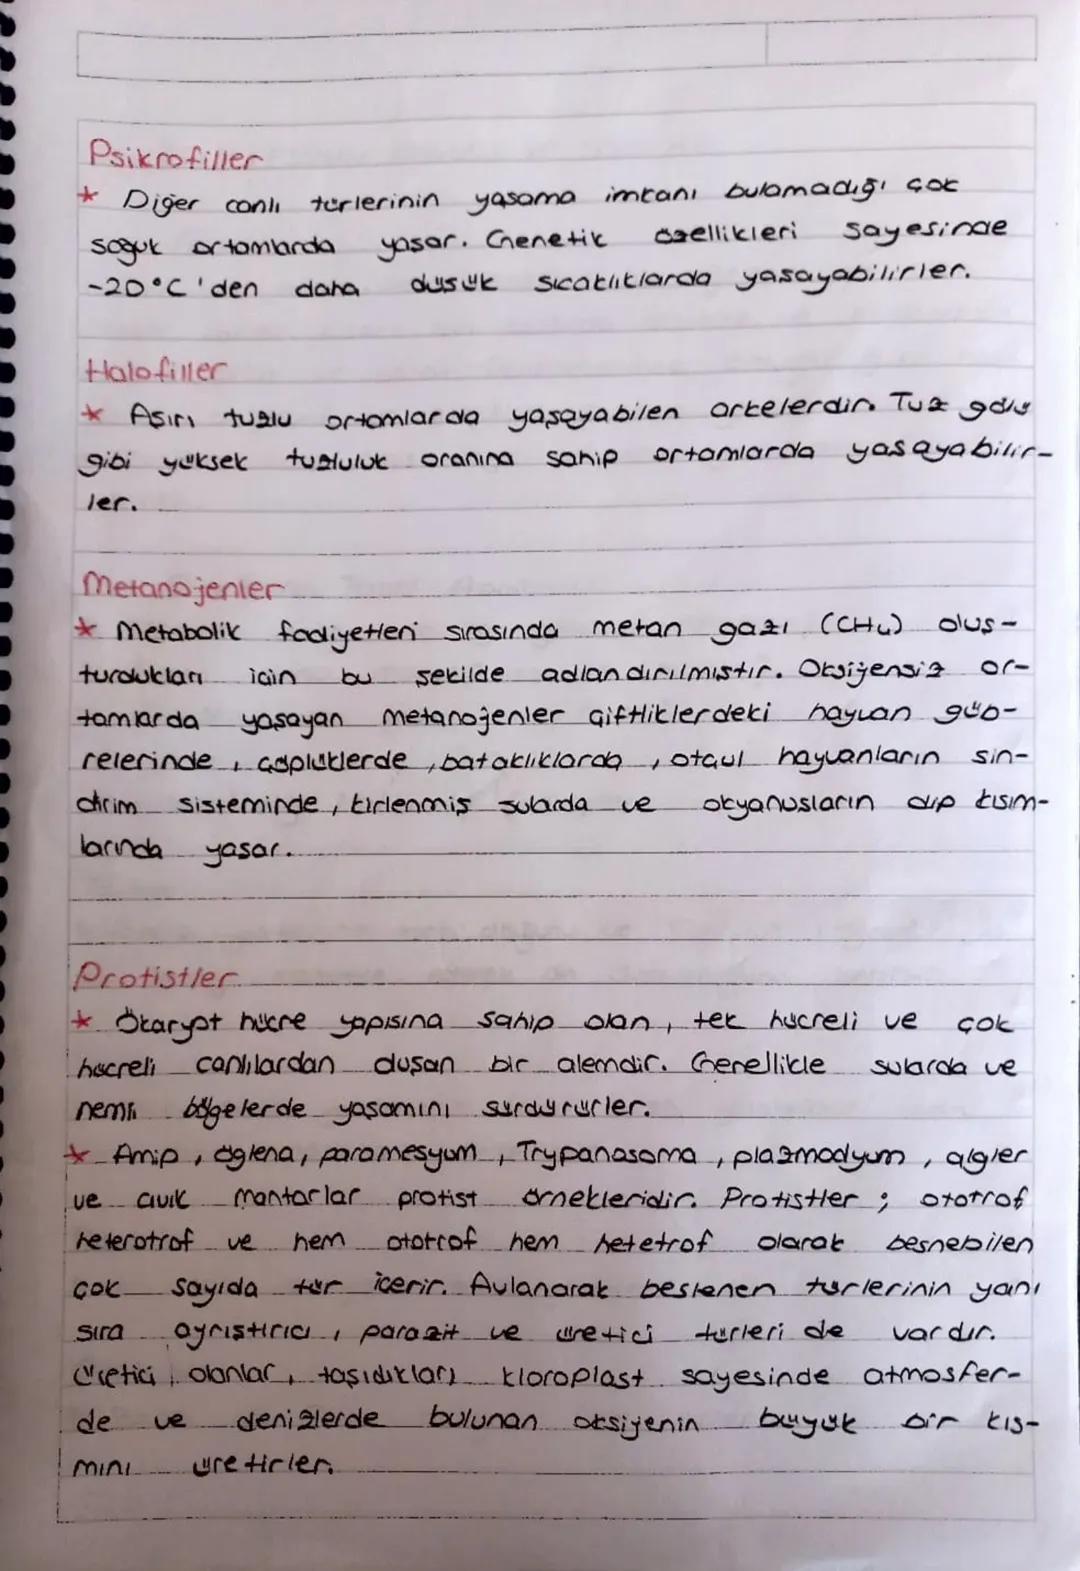 Psikrofiller
* Diğer canlı türlerinin yaşama imkanı bulamadığı çok
soğuk ortamlarda yaşar. Genetik özellikleri sayesinde
-20°C'den daha düşük sıcaklıklarda yaşayabilirler.
Halofiller
* Aşırı tuzlu ortamlarda yaşayabilen arkelerdir. Tuz gölü
gibi yüksek tuzluluk oranına sahip ortamlarda yaşayabilir-
ler.
Metanojenler
* Metabolik faaliyetleri sırasında metan gazı (CH4) oluş-
turdukları için bu şekilde adlandırılmıştır. Oksijensiz or-
tamlarda yaşayan metanojenler çiftliklerdeki hayvan güb-
relerinde, çöplüklerde, bataklıklarda, otçul hayvanların sin-
dirim sisteminde, kirlenmiş sularda ve okyanusların dip kısım-
larında yaşar.
Protistler
* Ökaryot hücre yapısına sahip olan, tek hücreli ve çok
hücreli canlılardan duşan bir alemdir. Genellikle sularda ve
nemli bölgelerde yaşamını sürdürürler.
* Amip, öglena, paramesyum, Trypanasoma, plazmodyum, algler
ve cıvık mantarlar protist örnekleridir. Protistler; ototrof
heterotrof ve hem ototrof hem hetetrof olarak besnebilen
çok sayıda tür içerir. Avlanarak beslenen türlerinin yanı
sıra ayrıştırıcı, parazit ve üretici türleri de vardır.
Üretici olanlar, taşıdıkları kloroplast sayesinde atmosfer-
de ve denizlerde bulunan oksijenin büyük bir kıs-
mını üretirler.